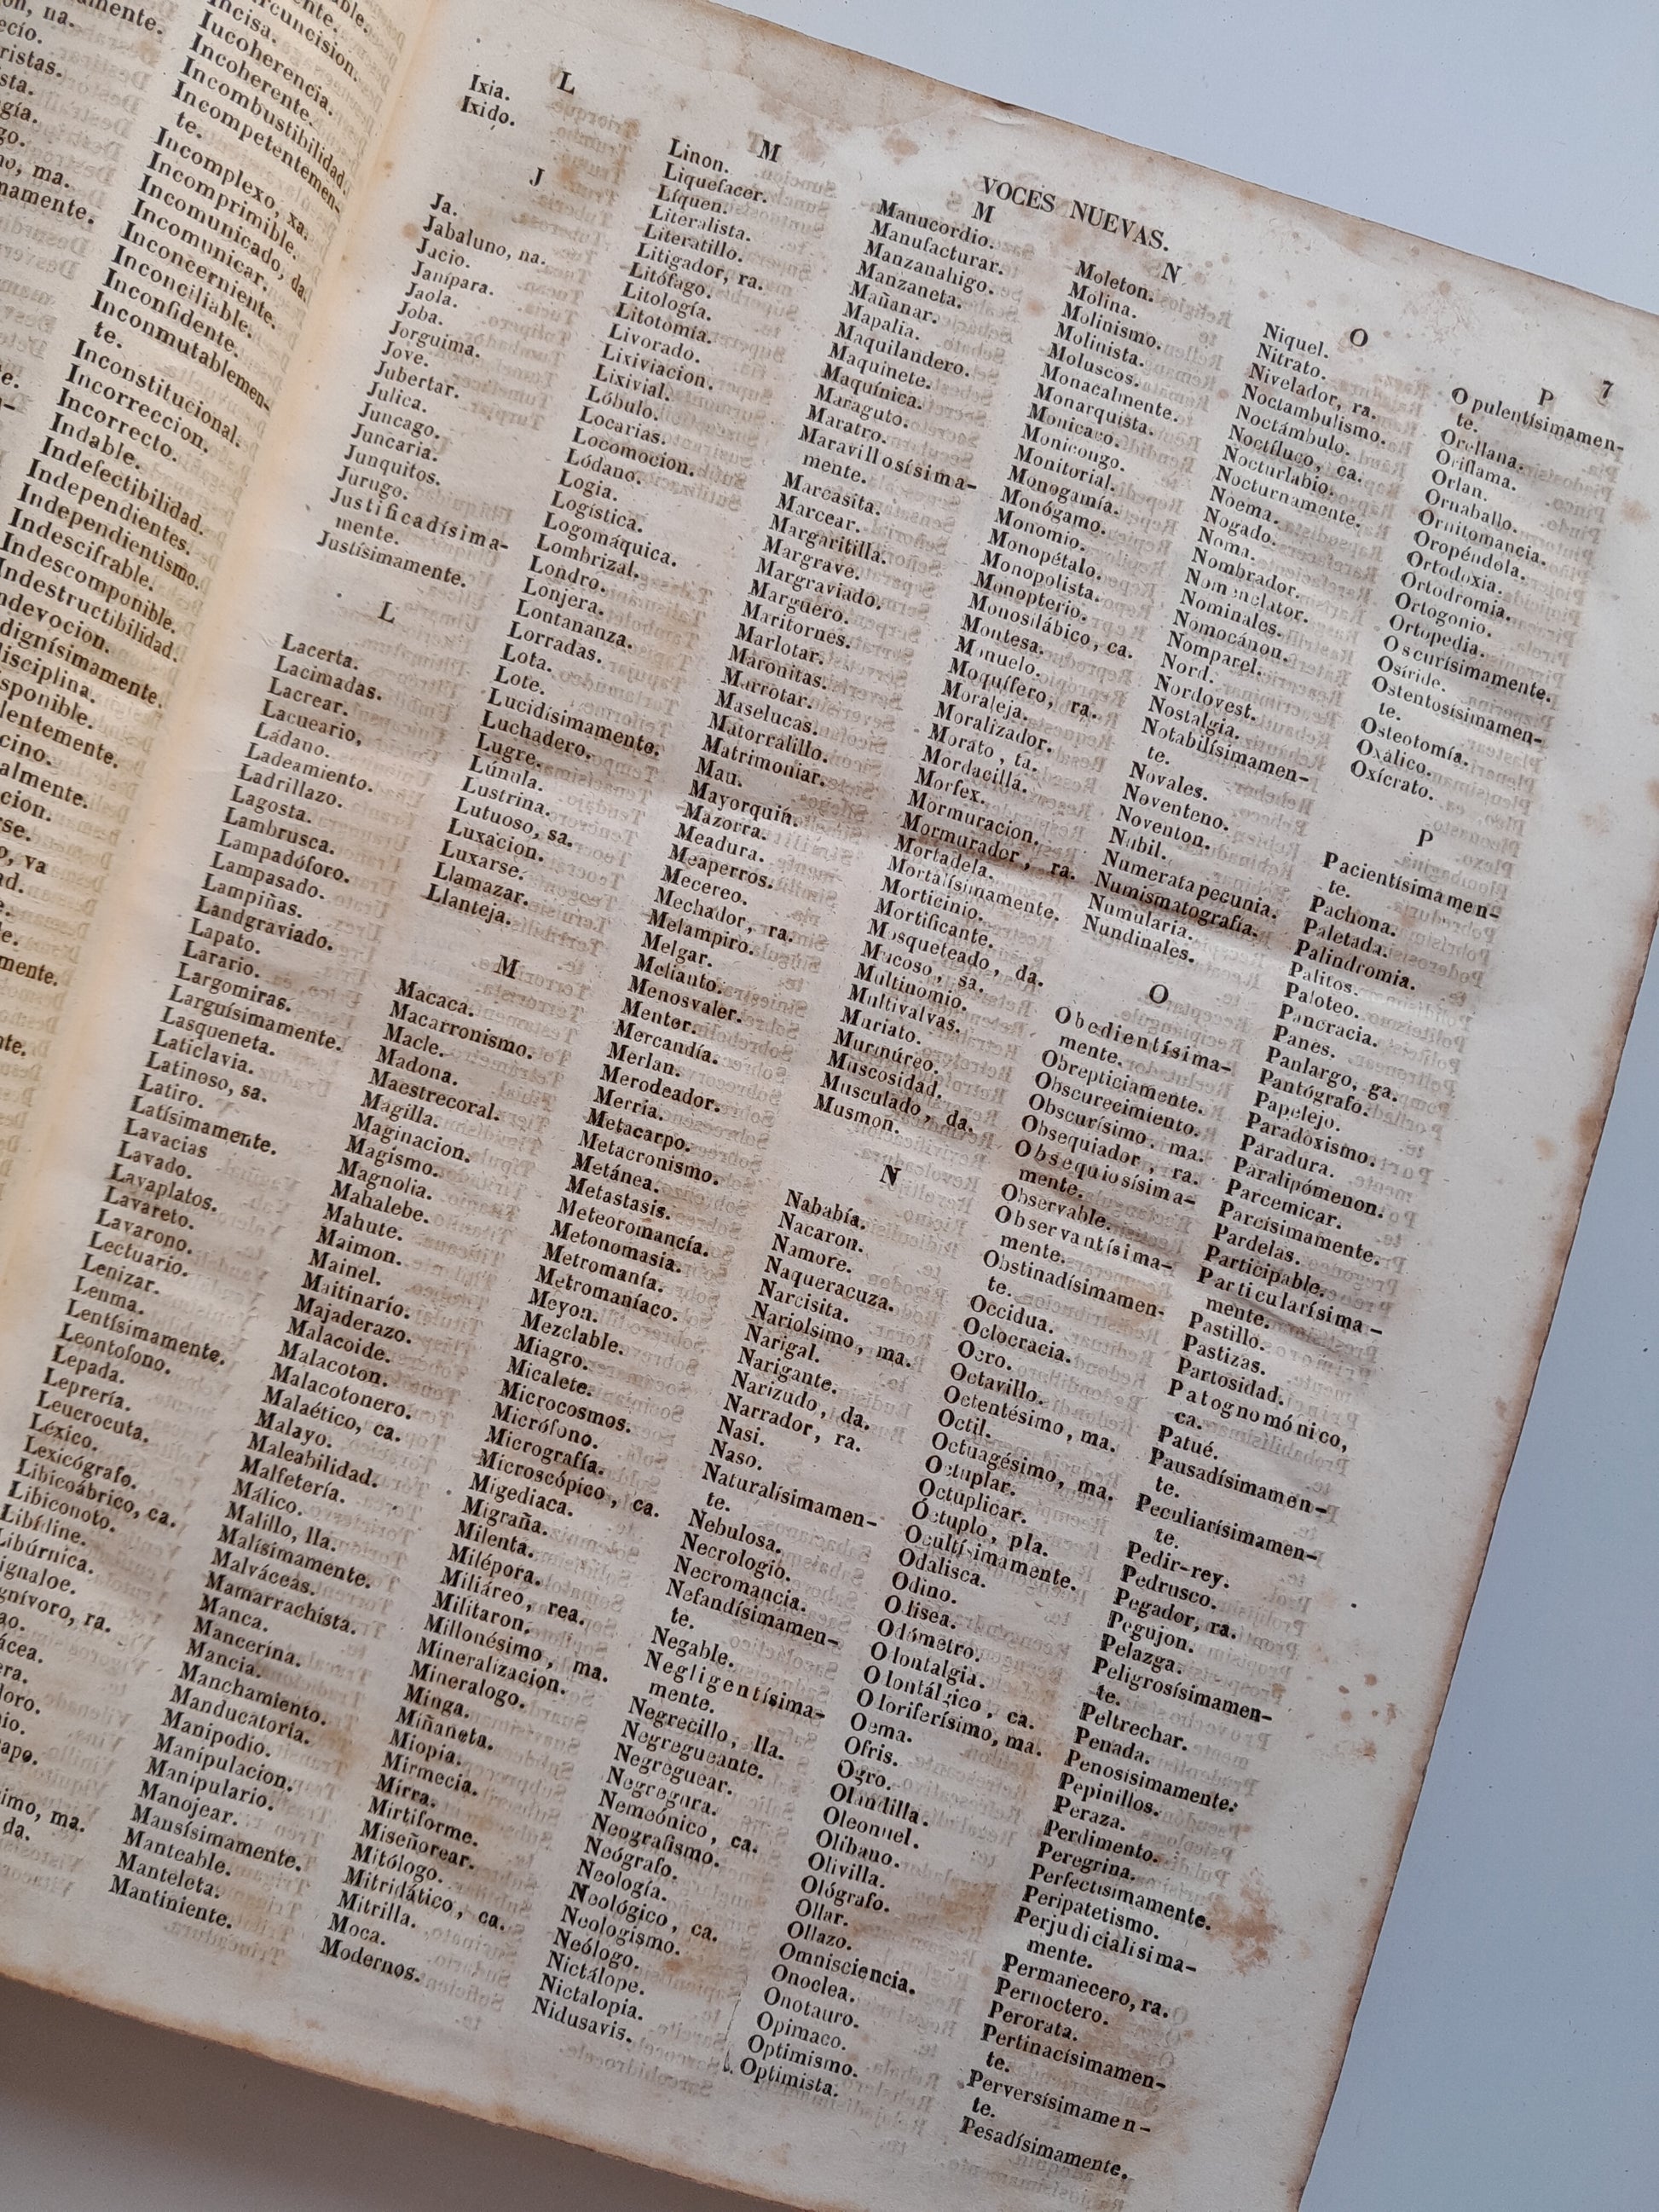 Incisa.
Iucoherencia.
Incoherente.
Incombustibilidad.
Incompetentemen-
te.
Incomplexo, xa.
Incomprimible.
Incomunicado, da.
Incomunicar.
Inconcerniente.
Inconciliable.
Inconfidente.
Inconmutablemen-
te.
Inconstitucional.
Incorreccion.
Incorrecto.
Indable.
Indefectibilidad.
Independientes.
Independientismo.
Indescifrable.
Indescomponible.
Indestructibilidad.
VOCES NUEVAS.
7
L
Ixia.
Ixido.
J
Ja.
Jabaluno, na.
Jacio.
Janípara.
Jaola.
Joba.
Jorguima.
Jove.
Jubertar.
Julica.
Juncago.
Juncaria.
Junquitos.
Jurugo.
Justificadísima-
mente.
Justísimamente.
L
Lacerta.
Lacimadas.
Lacrear.
Lacueario,
Ládano.
Ladeamiento.
Ladrillazo.
Lagosta.
Lambrusca.
Lampadóforo.
Lampasado.
Lampiñas.
Landgraviado.
Lapato.
Larario.
Largomiras.
Larguísimamente.
Lasqueneta.
Laticlavia.
Latinoso, sa.
Latiro.
Latísimamente.
Lavacias
Lavado.
Lavaplatos.
Lavareto.
Lavarono.
Lectuario.
Lenizar.
Lenma.
Lentísimamente.
Leontofono.
Lepada.
Leprería.
Leucrocuta.
Léxico.
Lexicógrafo.
Libicoábrico, ca.
Libiconoto.
Libídine.
Libúrnica.
M
Linon.
Liquefacer.
Líquen.
Literalista.
Literatillo.
Litigador, ra.
Litófago.
Litología.
Litotomía.
Livorado.
Lixiviacion.
Lixivial.
Lóbulo.
Locarias.
Locomocion.
Lódano.
Logia.
Logística.
Logomáquica.
Lombrizal.
Londro.
Lonjera.
Lontananza.
Lorradas.
Lota.
Lote.
Lucidísimamento.
Luchadero.
Lugre.
Lúnula.
Lustrina.
Lutuoso, sa.
Luxacion.
Luxarse.
Llamazar.
Llanteja.
M
Macaca.
Macarronismo.
Macle.
Madona.
Maestrecoral.
Magilla.
Maginacion.
Magismo.
Magnolia.
Mahalebe.
Mahute.
Maimon.
Mainel.
Maitinario.
Majaderazo.
Malacoide.
Malacoton.
Malacotonero.
Malaético, ca.
Malayo.
Maleabilidad.
Malfetería.
Málico.
Malillo, lla.
Malísimamente.
Malváceas.
Mamarrachista.
Manca.
Mancerina.
Mancia.
Manchamiento.
Manducatoria.
Manipodio.
Manipulacion.
Manipulario.
Manojear.
Mansísimamente.
Manteable.
Manteleta.
Mantiniente.
M
Manucordio.
Manufacturar.
Manzanahigo.
Manzaneta.
Mañanar.
Mapalia.
Maquilandero.
Maquinete.
Maquínica.
Maraguto.
Maratro.
Maravillosísima-
mente.
Marcasita.
Marcear.
Margaritilla.
Margrave.
Margraviado.
Marguero.
Maritornes.
Marlotar.
Maronitas.
Marrotar.
Maselucas.
Matorralillo.
Matrimoniar.
Mau.
Mayorquin.
Mazorra.
Meadura.
Meaperros.
Mecereo.
Mechador, ra.
Melampiro.
Melgar.
Melianto.
Menosvaler.
Mentor.
Mercandía.
Merlan.
Merodeador.
Merria.
Metacarpo.
Metacronismo.
Metánea.
Metastasis.
Meteoromancía.
Metonomasia.
Metromanía.
Metromaníaco.
Meyon.
Mezclable.
Miagro.
Micalete.
Microcosmos.
Micrófono.
Micrografía.
Microscópico, ca.
Migediaca.
Migraña.
Milenta.
Milépora.
Miliáreo, rea.
Militaron.
Millonésimo, ma.
Mineralizacion.
Mineralogo.
Minga.
Miñaneta.
Miopia.
Mirmecia.
Mirra.
Mirtiforme.
Miseñorear.
Mitólogo.
Mitridático, ca.
Mitrilla.
Moca.
Modernos.
N
Moleton.
Molina.
Molinismo.
Molinista.
Moluscos.
Monacalmente.
Monarquista.
Monicaco.
Monicongo.
Monitorial.
Monogamía.
Monógamo.
Monomio.
Monopétalo.
Monopolista.
Monopterio.
Monosilábico, ca.
Montesa.
Monuelo.
Moquífero, ra.
Moraleja.
Moralizador.
Morato, ta.
Mordacilla.
Morfex.
Mormuracion.
Mormurador, ra.
Mortadela.
Mortalísimamente.
Morticinio.
Mortificante.
Mosqueteado, da.
Mucoso, sa.
Multinomio.
Multivalvas.
Muriato.
Murmúreo.
Muscosidad.
Musculado, da.
Musmon.
N
Nababía.
Nacaron.
Namore.
Naqueracuza.
Narcisita.
Nariolsimo, ma.
Narigal.
Narigante.
Narizudo, da.
Narrador, ra.
Nasi.
Naso.
Naturalísimamen-
te.
Nebulosa.
Necrologio.
Necromancia.
Nefandísimamen-
te.
Negable.
Negligentísima-
mente.
Negrecillo, lla.
Negregueante.
Negreguear.
Negregura.
Nemeónico, ca.
Neografismo.
Neógrafo.
Neología.
Neológico, ca.
Neologismo.
Neólogo.
Nictálope.
Nictalopia.
Nidusavis.
O
Niquel.
Nitrato.
Nivelador, ra.
Noctambulismo.
Noctámbulo.
Noctíluco, ca.
Nocturlabio.
Nocturnamente.
Noema.
Nogado.
Noma.
Nombrador.
Nomenclator.
Nominales.
Nomocánon.
Nomparel.
Nord.
Nordovest.
Nostalgia.
Notabilísimamen-
te.
Novales.
Noventeno.
Noventon.
Nubil.
Numerata pecunia.
Numismatografía.
Numularia.
Nundinales.
O
Obedientísima-
mente.
Obrepticiamente.
Obscurecimiento.
Obscurísimo, ma.
Obsequiador, ra.
Obsequiosísima-
mente.
Observable.
Observantísima-
mente.
Obstinadísimamen-
te.
Occidua.
Oclocracia.
Ocro.
Octavillo.
Octentésimo, ma.
Octil.
Octuagésimo, ma.
Octuplar.
Octuplicar.
Óctuplo, pla.
Ocultísimamente.
Odalisca.
Odino.
Odisea.
Odómetro.
Odontalgia.
Odontálgico, ca.
Odoriferísimo, ma.
Oema.
Ofris.
Ogro.
Olandilla.
Oleonuel.
Olíbano.
Olivilla.
Ológrafo.
Ollar.
Ollazo.
Omnisciencia.
Onoclea.
Onotauro.
Opimaco.
Optimismo.
Optimista.
P
Opulentísimamen-
te.
Orellana.
Oriflama.
Orlan.
Ornaballo.
Ornitomancia.
Oropéndola.
Ortodoxia.
Ortodromia.
Ortogonio.
Ortopedia.
Oscurísimamente.
Osíride.
Ostentosísimamen-
te.
Osteotomía.
Oxálico.
Oxícrato.
P
Pacientísimamen-
te.
Pachona.
Paletada.
Palindromia.
Palitos.
Paloteo.
Pancracia.
Panes.
Panlargo, ga.
Pantógrafo.
Papelejo.
Paradoxismo.
Paradura.
Paralipómenon.
Parcemicar.
Parcísimamente.
Pardelas.
Participable.
Particularísima-
mente.
Pastillo.
Pastizas.
Partosidad.
Patognomónico,
ca.
Patué.
Pausadísimamen-
te.
Peculiarísimamen-
te.
Pedir-rey.
Pedrusco.
Pegador, ra.
Pegujon.
Pelazga.
Peligrosísimamen-
te.
Peltrechar.
Penada.
Penosísimamente.
Pepinillos.
Peraza.
Perdimento.
Peregrina.
Perfectísimamente.
Peripatetismo.
Perjudicialísima-
mente.
Permanecero, ra.
Pernoctero.
Perorata.
Pertinacísimamen-
te.
Perversísimamen-
te.
Pesadísimamente.